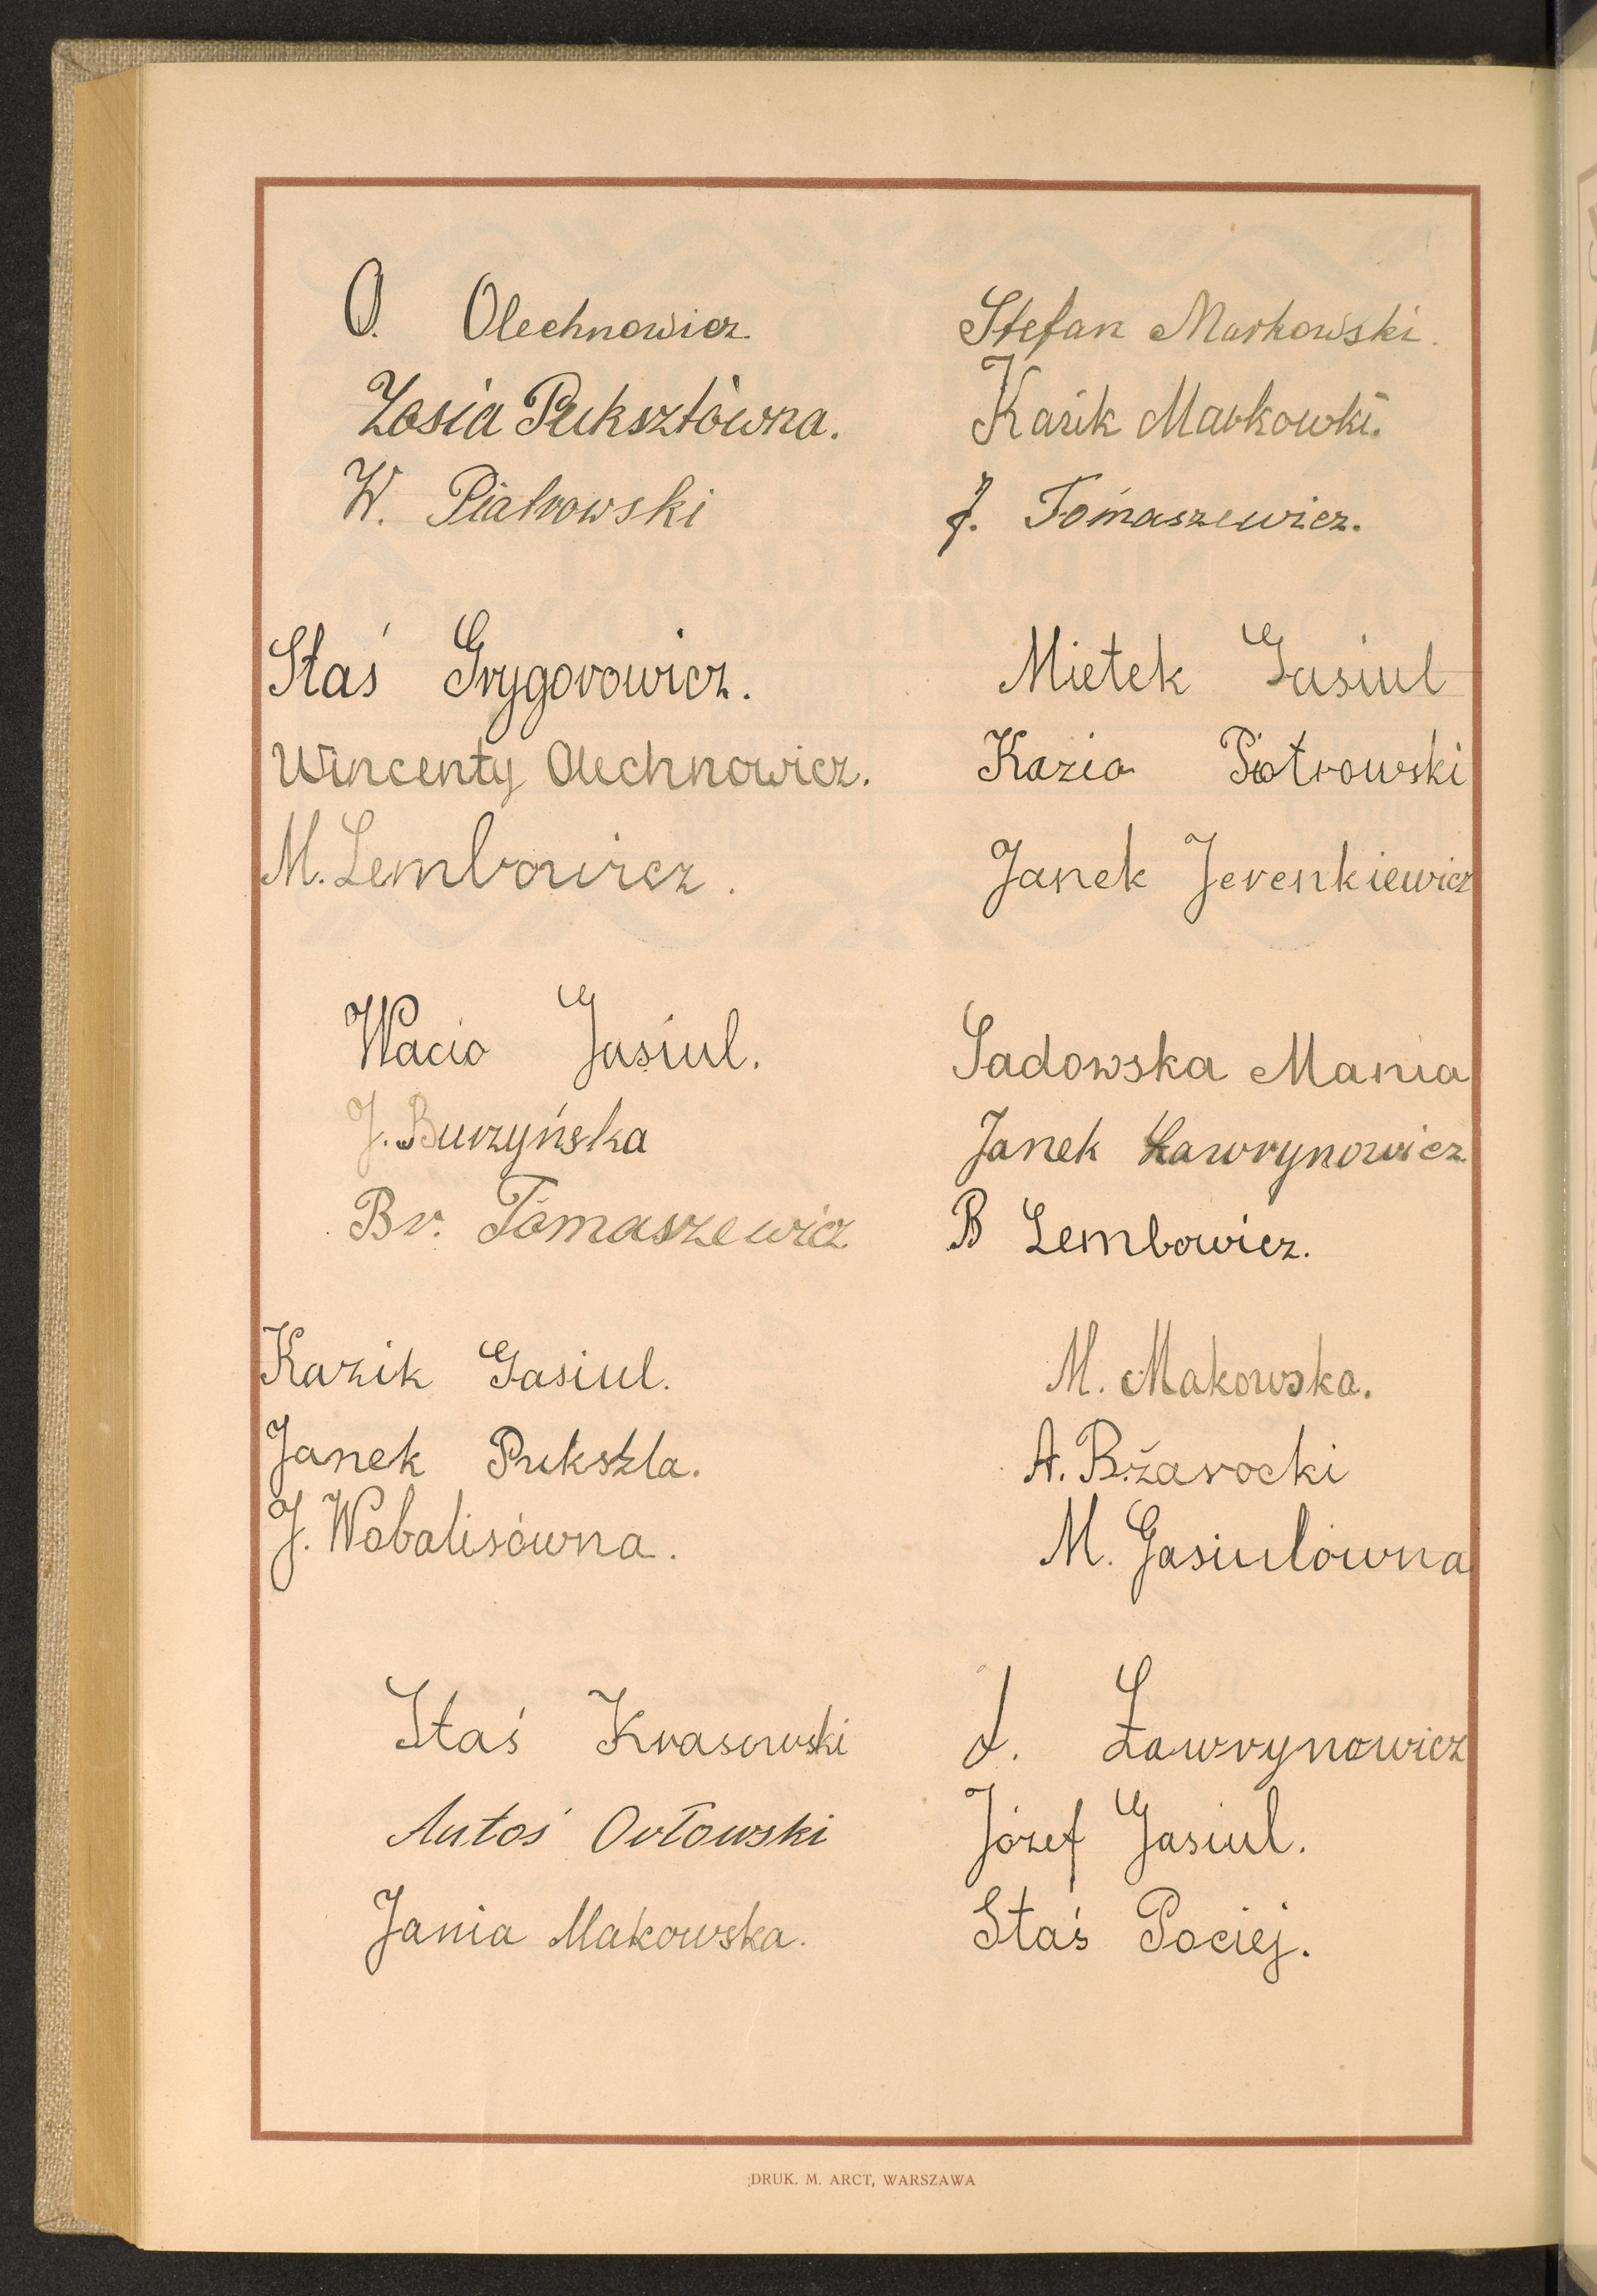 O. Olechnowicz.
Zosia Puksztówna.
W. Piatrowski
Staś Grygorowicz.
Wincenty Olechnowicz.
M. Lembowicz.
Wacio Gasiul.
J. Burzyńska
Br. Tomaszewicz
Kazik Gasiul.
Janek Pukszta.
J. Wobalisówna.
Staś Krasowski
Antoś Orłowski
Jania Makowska.
Stefan Markowski.
Kazik Markowki.
J. Tomaszewicz.
Mietek Gasiul
Kazio Piotrowski
Janek Jerenkiewicz
Sadowska Mania
Janek Ławrynowicz
B Lembowicz.
M. Makowska.
A. Bżarocki
M. Gasiulówna
Ławrynowicz
Józef Gasiul.
Staś Pociej.
DRUK. M. ARCT, WARSZAWA